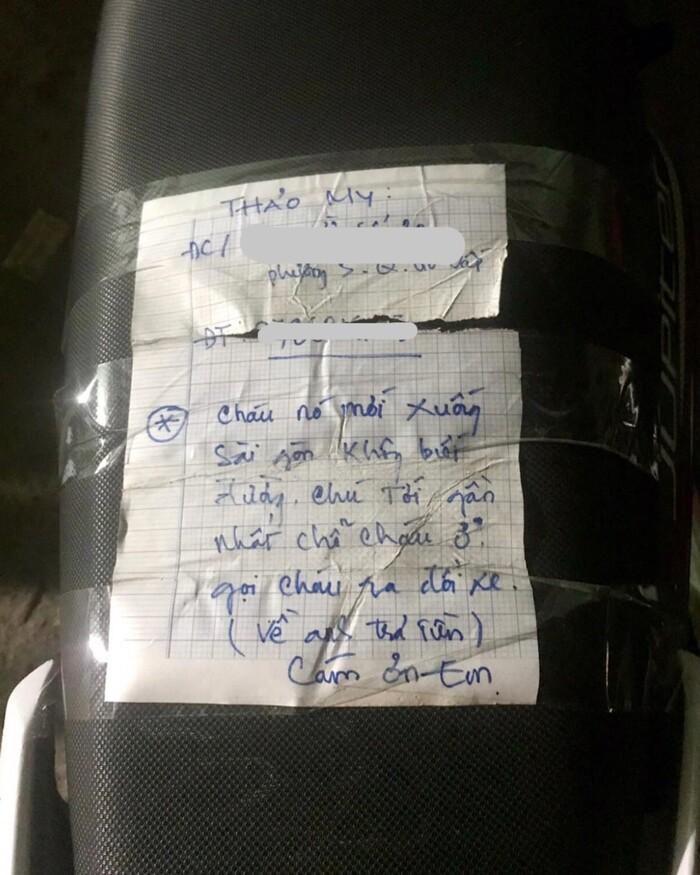 THẢO MY:
ĐC/
phường 5. Q. Gò Vấp
ĐT:
* Cháu nó mới xuống
Sài gòn không biết
đường. Chú Tới gần
nhất chỗ cháu ở.
gọi cháu ra đổi xe.
(Về anh trả tiền)
Cám ơn - Em
JUPITER